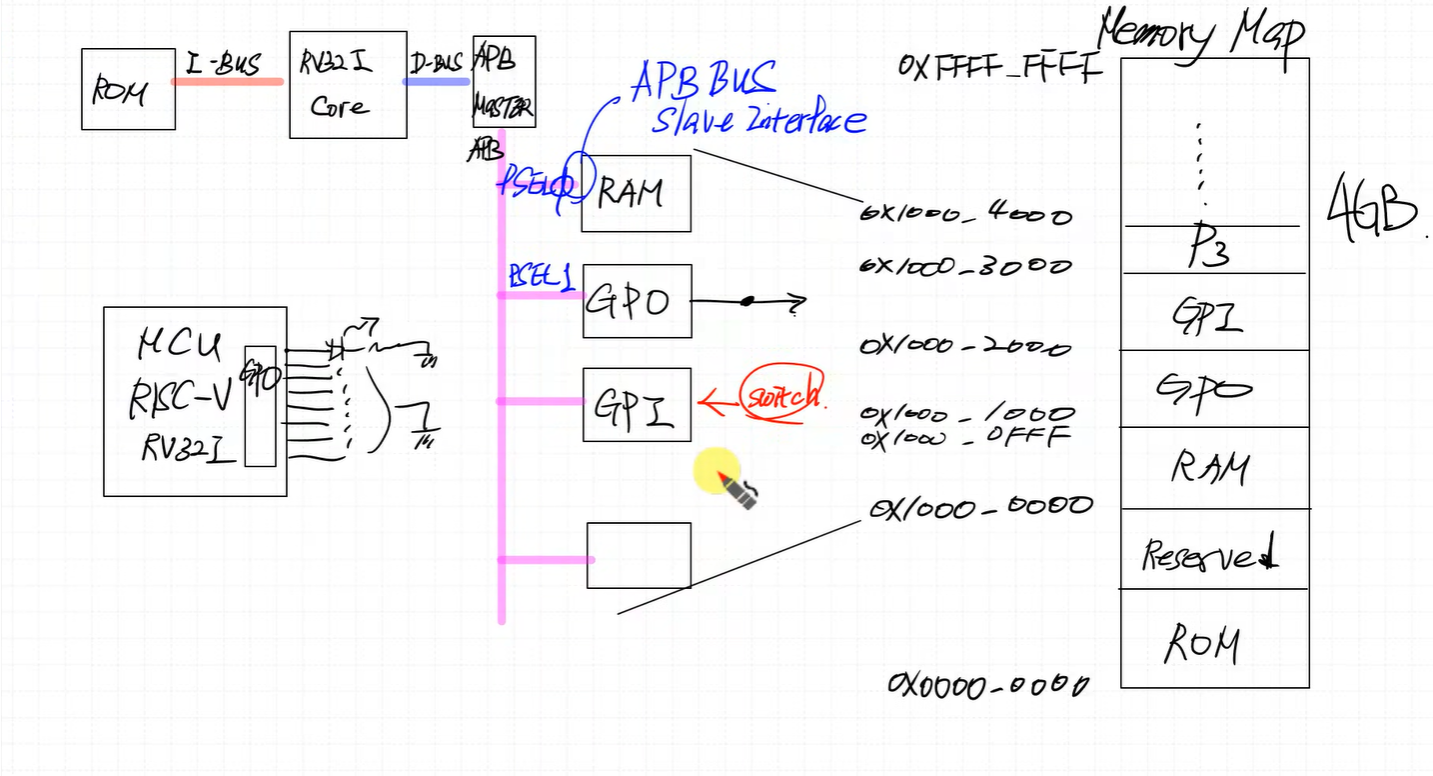 Memory Map
0XFFFF_FFFF
ROM
I-BUS
RV32I
Core
D-BUS
APB
MASTER
APB
APB BUS
Slave Interface
PSEL0
RAM
PSEL1
GPO
GPI
switch.
MCU
RISC-V
RV32I
GPO
0X1000_4000
0X1000_3000
0X1000_2000
0X1000_1000
0X1000_0FFF
0X1000_0000
0X0000_0000
P3
GPI
GPO
RAM
Reserved
ROM
4GB.